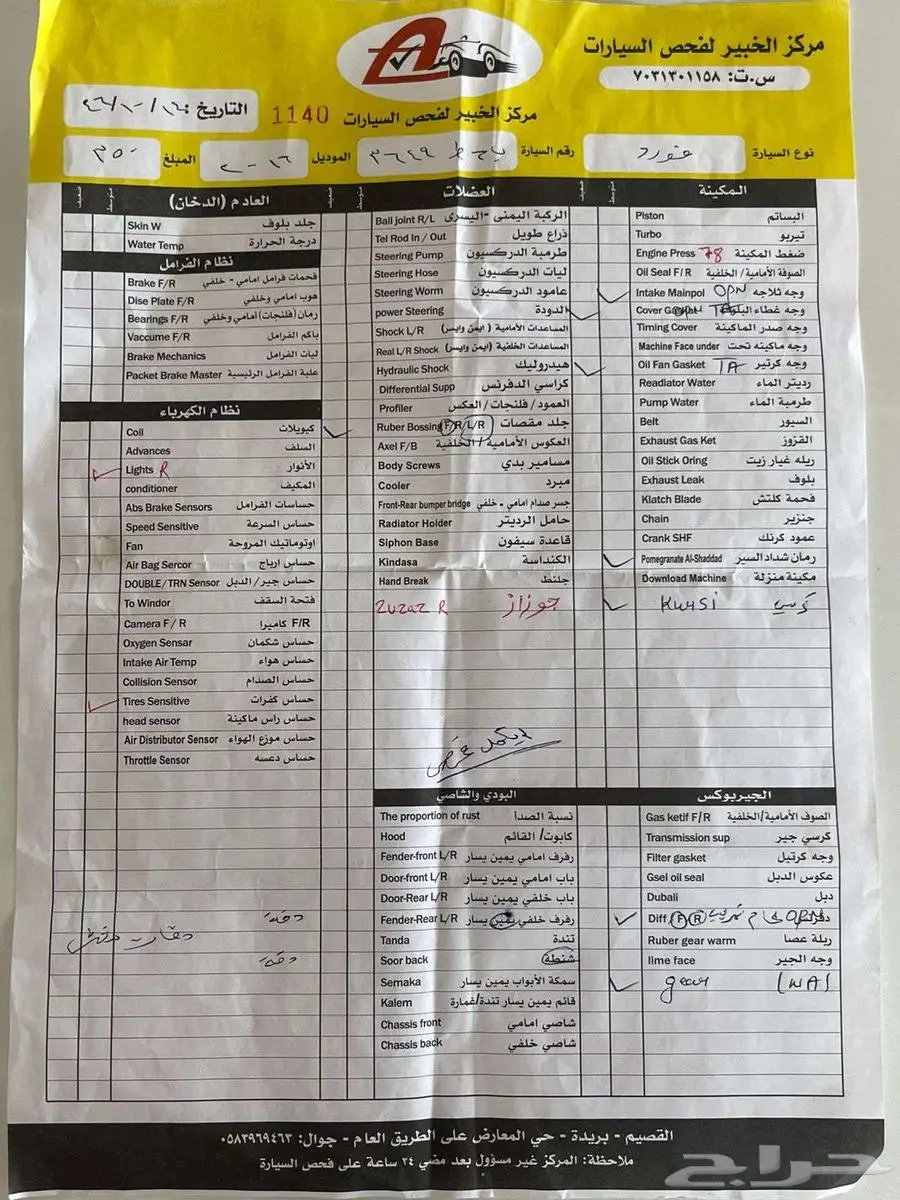 مركز الخبير لفحص السيارات
س.ت: ٧٠٣١٣٠١١٥٨
مركز الخبير لفحص السيارات 1140 التاريخ:
نوع السيارة رقم السيارة ٣٦٤٩ الموديل ٢٠١٦ المبلغ ٣٥٠
المكينة
Piston البساتم
Turbo تيربو
Engine Press 78 ضغط المكينة
Oil Seal F/R الصوفة الأمامية/ الخلفية
Intake Mainpol OPN وجه ثلاجه
Cover Gasket وجه غطاء البلوف
Timing Cover وجه صدر الماكينة
Machine Face under وجه ماكينه تحت
Oil Fan Gasket TA وجه كرتير
Readiator Water رديتر الماء
Pump Water طرمبة الماء
Belt السيور
Exhaust Gas Ket القزوز
Oil Stick Oring ريله غيار زيت
Exhaust Leak بلوف
Klatch Blade فحمة كلتش
Chain جنزير
Crank SHF عمود كرنك
Pomegranate Al-Shaddad رمان شداد السير
Download Machine مكينة منزلة
Kursi كرسي
الجيربوكس
Gas ketif F/R الصوف الأمامية/الخلفية
Transmission sup كرسي جير
Filter gasket وجه كرتيل
Gsel oil seal عكوس الدبل
Dubali دبل
Diff F R OPN
Ruber gear warm ربلة عصا
lime face وجه الجير
gear
العضلات
Ball joint R/L الركبة اليمنى -اليسرى
Tel Rod In / Out ذراع طويل
Steering Pump طرمبة الدركسيون
Steering Hose ليات الدركسيون
Steering Worm عامود الدركسيون
power Steering الدودة
Shock L/R المساعدات الأمامية (ايمن وايسر)
Real L/R Shock المساعدات الخلفية (ايمن وايسر)
Hydraulic Shock هيدروليك
Differential Supp كراسي الدفرنس
Profiler العمود/ فلنجات/ العكس
Ruber Bossing F/R/L/R جلد مقصات
Axel F/B العكوس الأمامية/الخلفية
Body Screws مسامير بدي
Cooler مبرد
Front-Rear bumper bridge جسر صدام امامي - خلفي
Radiator Holder حامل الرديتر
Siphon Base قاعدة سيفون
Kindasa الكنداسة
Hand Break جلنط
Zuzaz R جوزاز
البودي والشاصي
The proportion of rust نسبة الصدأ
Hood كابوت/ القائم
Fender-front L/R رفرف امامي يمين يسار
Door-front L/R باب امامي يمين يسار
Door-Rear L/R باب خلفي يمين يسار
Fender-Rear L/R رفرف خلفي يمين يسار
Tanda تندة
Soor back شنطة
Semaka سمكة الأبواب يمين يسار
Kalem قائم يمين يسار تندة/غمارة
Chassis front شاصي امامي
Chassis back شاصي خلفي
العادم (الدخان)
Skin W جلد بلوف
Water Temp درجة الحرارة
نظام الفرامل
Brake F/R فحمات فرامل امامي - خلفي
Dise Plate F/R هوب امامي وخلفي
Bearings F/R رمان (فلنجات) امامي وخلفي
Vaccume F/R باكم الفرامل
Brake Mechanics ليات الفرامل
Packet Brake Master علبة الفرامل الرئيسية
نظام الكهرباء
Coil كيوبلات
Advances السلف
Lights R الأنوار
conditioner المكيف
Abs Brake Sensors حساسات الفرامل
Speed Sensitive حساس السرعة
Fan اوتوماتيك المروحة
Air Bag Sercor حساس ارباج
DOUBLE/ TRN Sensor حساس جير/ الدبل
To Windor فتحة السقف
Camera F / R كاميرا F/R
Oxygen Sensar حساس شكمان
Intake Air Temp حساس هواء
Collision Sensor حساس الصدام
Tires Sensitive حساس كفرات
head sensor حساس راس ماكينة
Air Distributor Sensor حساس موزع الهواء
Throttle Sensor حساس دعسه
القصيم - بريدة - حي المعارض على الطريق العام - جوال: ٠٥٨٣٩٦٩٤٦٣
ملاحظة: المركز غير مسؤول بعد مضي ٢٤ ساعة على فحص السيارة
حراج